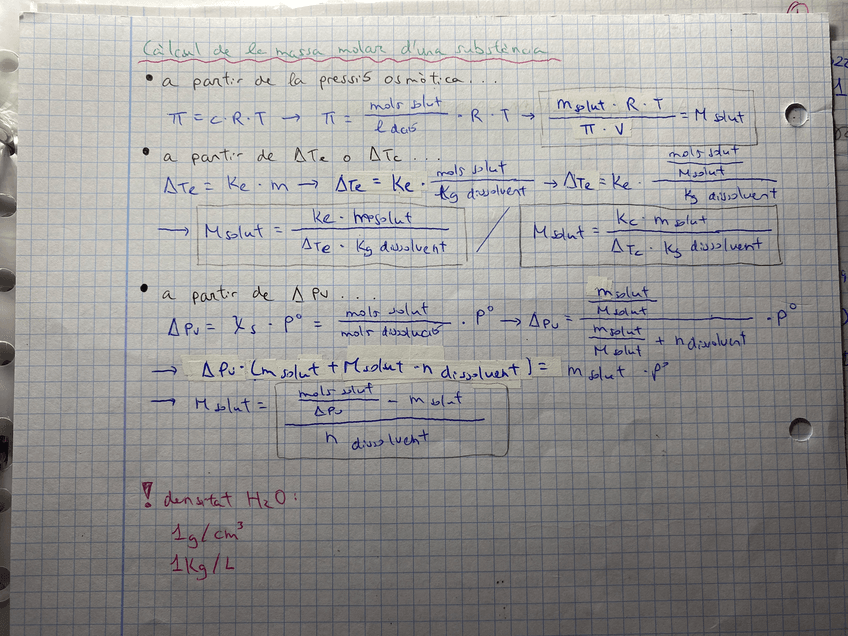 Càlcul de la massa molar d'una substància
• a partir de la pressió osmòtica...
π = c·R·T → π = mols solut / l dció · R · T → m solut · R · T / π · V = M solut
• a partir de ΔTe o ΔTc...
ΔTe = Ke · m → ΔTe = Ke · mols solut / Kg dissolvent → ΔTe = Ke · mols solut / M solut / Kg dissolvent
→ M solut = Ke · m solut / ΔTe · Kg dissolvent / M solut = Kc · m solut / ΔTc · Kg dissolvent
• a partir de ΔPv....
ΔPv = χs · P° = mols solut / mols dissolució · P° → ΔPv = m solut / M solut / m solut / M solut + n dissolvent · P°
→ ΔPv · (m solut + M solut · n dissolvent) = m solut · P°
→ M solut = mols solut / ΔPv - m solut / n dissolvent
! densitat H₂O:
1g/cm³
1Kg/L